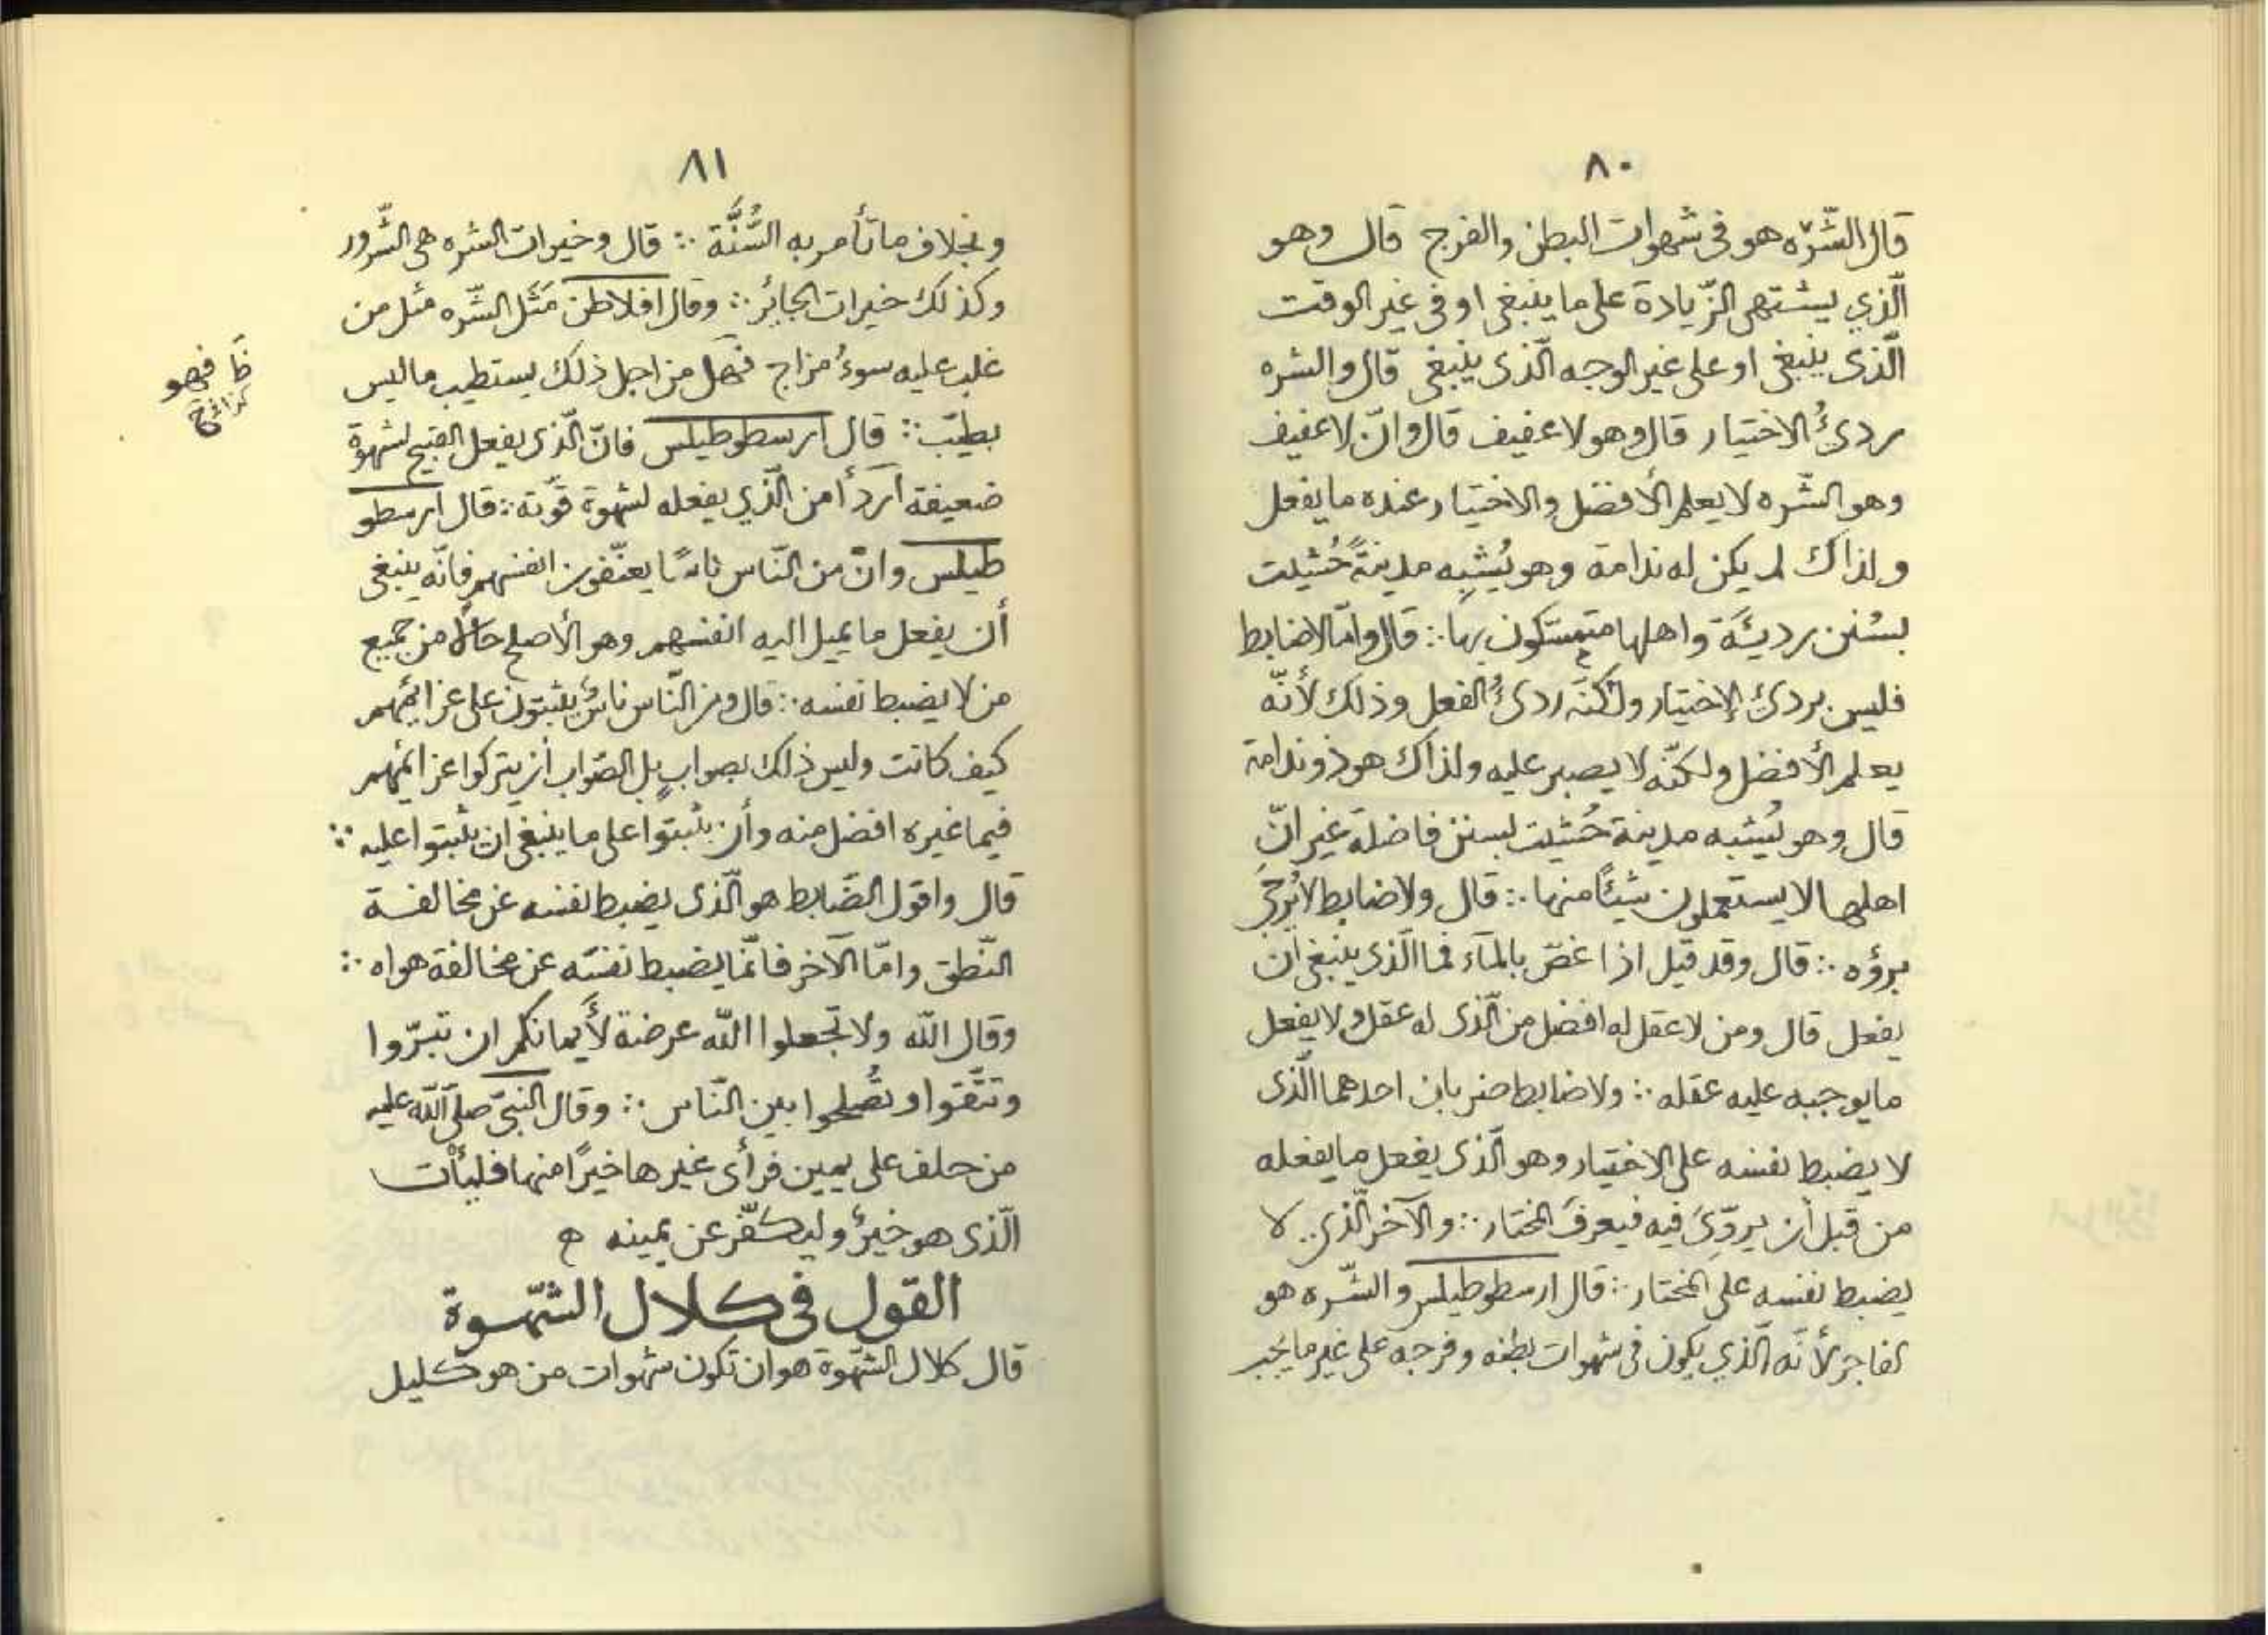 ٨٠
قال الشّره هو في شهوات البطن والفرج قال وهو
الّذي يشتهى الزّيادة على ما ينبغى او فى غير الوقت
الّذى ينبغى او على غير الوجه الّذى ينبغى قال والشره
ردىُٔ الاختيار قال وهو لا عفيف قال وانّ لا عفيف
وهو الشّره لا يعلم الأفضل والاختيار عنده ما يفعل
ولذاك لم يكن له ندامة وهو يُشبِه مدينةً حُشيت
بسُنن رديئَة واهلها متمسّكون بها ∴ قال وامّا لاضابط
فليس بردئ الإختيار ولكنّه ردىُٔ الفعل وذلك لأنّه
يعلم الأفضل ولكنّه لا يصبر عليه ولذاك هو ذو ندامة
قال وهو يُشبه مدينة حُشيت بسنن فاضلة غير انّ
اهلها لا يستعملون شيئًا منها ∴ قال ولاضابط لا يُرجَى
برؤه ∴ قال وقد قيل اذا غصّ بالمآء فما الّذى ينبغى ان
يفعل قال ومن لا عقل له افضل من الّذى له عقل ولا يفعل
ما يوجبه عليه عقله ∴ ولاضابط ضربان احدهما الّذى
لا يضبط نفسه على الاختيار وهو الّذى يفعل ما يفعله
من قبل أن يروّىَ فيه فيعرفَ المختار ∴ والآخر الّذي لا
يضبط نفسه على المختار ∴ قال ارسطوطيلس والشّره هو
الفاجر لأنّه الّذي يكون فى شهوات بطنه وفرجه على غير ما يجب
٨١
وبخلاف ما تأمر به السُّنَّة ∴ قال وخيرات الشره هى الشّرور
وكذلك خيرات الجائر ∴ وقال افلاطن مَثَل الشّره مثل من
غلب عليه سوءُ مزاج فهل من اجل ذلك يستطيب ما ليس
بطيّب ∴ قال ارسطوطيلس فانّ الّذى يفعل القبيح لشهوة
ضعيفة أردأ من الّذي يفعله لشهوة قوّية ∴ قال ارسطو
طيلس وانّ من النّاس ناسًا يعنّفون انفسهم فانّه ينبغى
أن يفعل ما يميل اليه انفسهم وهو الأصلح حالاً من جميع
من لا يضبط نفسه ∴ قال ومن النّاس ناسٌ يثبتون على عزايمهم
كيف كانت وليس ذلك بصوابٍ بل الصّواب أن يتركوا عزائمهم
فيما غيره افضل منه وأن يثبتوا على ما ينبغى ان يثبتوا عليه ∴
قال واقول الضّابط هو الّذى يضبط نفسه عن مخالفة
النّطق وامّا الآخر فانّما يضبط نفسَه عن مخالفة هواه ∴
وقال الله ولا تجعلوا الله عرضة لأيمانكم ان تبرّوا
وتتّقوا وتُصلحوا بين النّاس ∴ وقال النبىّ صلى الله عليه
من حلف على يمين فرأى غيرها خيرًا منها فليأت
الّذى هو خيرٌ وليكفّر عن يمينه ه
القول فى كلال الشّهوة
قال كلال الشّهوة هو ان تكون شهوات من هو كليل
ظ فهو